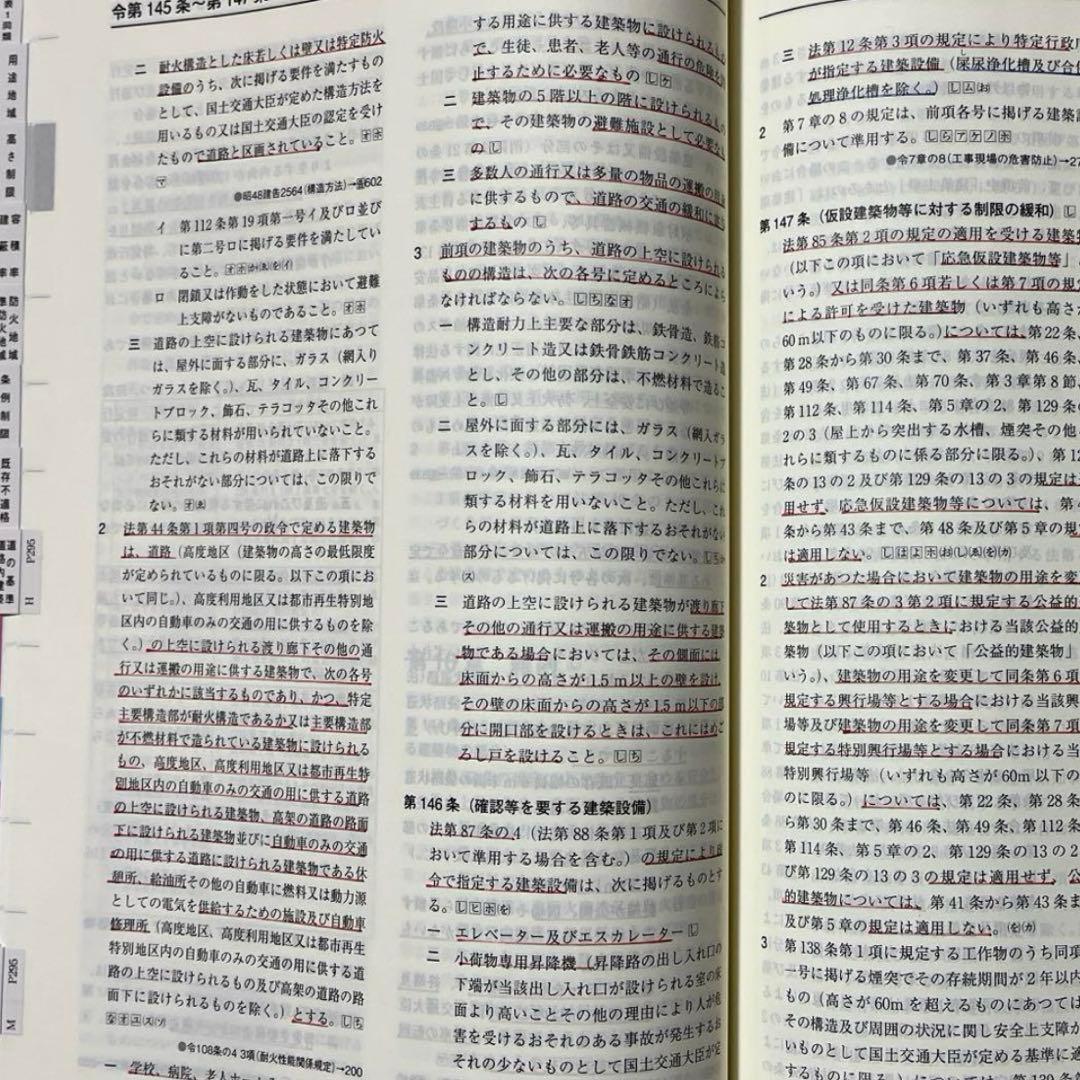 令第145条〜第147条
二 耐火構造とした床若しくは壁又は特定防火
設備のうち、次に掲げる要件を満たすもの
として、国土交通大臣が定めた構造方法を
用いるもの又は国土交通大臣の認定を受け
たもので道路と区画されていること。
●昭48建告2564(構造方法)→告602
イ 第112条第19項第一号イ及びロ並び
に第二号ロに掲げる要件を満たしてい
ること。
ロ 閉鎖又は作動をした状態において避難
上支障がないものであること。
三 道路の上空に設けられる建築物にあつて
は、屋外に面する部分に、ガラス(網入り
ガラスを除く。)、瓦、タイル、コンクリー
トブロック、飾石、テラコッタその他これ
らに類する材料が用いられていないこと。
ただし、これらの材料が道路上に落下する
おそれがない部分については、この限りで
ない。
2 法第44条第1項第四号の政令で定める建築物
は、道路(高度地区(建築物の高さの最低限度
が定められているものに限る。以下この項にお
いて同じ。)、高度利用地区又は都市再生特別地
区内の自動車のみの交通の用に供するものを除
く。)の上空に設けられる渡り廊下その他の通
行又は運搬の用途に供する建築物で、次の各号
のいずれかに該当するものであり、かつ、特定
主要構造部が耐火構造であるか又は主要構造部
が不燃材料で造られている建築物に設けられる
もの、高度地区、高度利用地区又は都市再生特
別地区内の自動車のみの交通の用に供する道路
の上空に設けられる建築物、高架の道路の路面
下に設けられる建築物並びに自動車のみの交通
の用に供する道路に設けられる建築物である休
憩所、給油所その他の自動車に燃料又は動力源
としての電気を供給するための施設及び自動車
修理所(高度地区、高度利用地区又は都市再生
特別地区内の自動車のみの交通の用に供する道
路の上空に設けられるもの及び高架の道路の路
面下に設けられるものを除く。)とする。
●令108条の4 3項(耐火性能関係規定)→200
一 学校、病院、老人ホーム
する用途に供する建築物に設けられるもの
で、生徒、患者、老人等の通行の危険を
止するために必要なもの
二 建築物の5階以上の階に設けられるもの
で、その建築物の避難施設として必要なも
の
三 多数人の通行又は多量の物品の運搬の用途
に供するもので、道路の交通の緩和に寄与
するもの
3 前項の建築物のうち、道路の上空に設けられる
ものの構造は、次の各号に定めるところによら
なければならない。
一 構造耐力上主要な部分は、鉄骨造、鉄筋コ
ンクリート造又は鉄骨鉄筋コンクリート造
とし、その他の部分は、不燃材料で造るこ
と。
二 屋外に面する部分には、ガラス(網入ガラ
スを除く。)、瓦、タイル、コンクリートブ
ロック、飾石、テラコッタその他これらに
類する材料を用いないこと。ただし、これ
らの材料が道路上に落下するおそれがない
部分については、この限りでない。
三 道路の上空に設けられる建築物が渡り廊下
その他の通行又は運搬の用途に供する建築
物である場合においては、その側面には
床面からの高さが1.5m以上の壁を設け、
その壁の床面からの高さが1.5m以下の部
分に開口部を設けるときは、これにはめご
ろし戸を設けること。
第146条(確認等を要する建築設備)
法第87条の4(法第88条第1項及び第2項に
おいて準用する場合を含む。)の規定により政
令で指定する建築設備は、次に掲げるものとす
る。
一 エレベーター及びエスカレーター
二 小荷物専用昇降機(昇降路の出し入れ口の
下端が当該出し入れ口が設けられる室の床
面より高いことその他の理由により人が危
害を受けるおそれのある事故が発生するお
それの少ないものとして国土交通大臣が定
三 法第12条第3項の規定により特定行政庁
が指定する建築設備(屎尿浄化槽及び合併
処理浄化槽を除く。)
2 第7章の8の規定は、前項各号に掲げる建築設
備について準用する。
●令7章の8(工事現場の危害防止)→27
第147条(仮設建築物等に対する制限の緩和)
法第85条第2項の規定の適用を受ける建築物
(以下この項において「応急仮設建築物等」と
いう。)又は同条第6項若しくは第7項の規定
による許可を受けた建築物(いずれも高さが
60m以下のものに限る。)については、第22条、
第28条から第30条まで、第37条、第46条、
第49条、第67条、第70条、第3章第8節、
第112条、第114条、第5章の2、第129条の
2の3(屋上から突出する水槽、煙突その他こ
れらに類するものに係る部分に限る。)、第12
条の13の2及び第129条の13の3の規定は適
用せず、応急仮設建築物等については、第4
条から第43条まで、第48条及び第5章の規定
は適用しない。
2 災害があつた場合において建築物の用途を変更
して法第87条の3第2項に規定する公益的建
築物として使用するときにおける当該公益的建
築物(以下この項において「公益的建築物」と
いう。)、建築物の用途を変更して同条第6項に
規定する興行場等とする場合における当該興行
場等及び建築物の用途を変更して同条第7項に
規定する特別興行場等とする場合における当該
特別興行場等(いずれも高さが60m以下のも
のに限る。)については、第22条、第28条か
ら第30条まで、第46条、第49条、第112条、
第114条、第5章の2、第129条の13の2及
び第129条の13の3の規定は適用せず、公益
的建築物については、第41条から第43条まで
及び第5章の規定は適用しない。
3 第138条第1項に規定する工作物のうち同項第
一号に掲げる煙突でその存続期間が2年以内の
もの(高さが60mを超えるものにあつては、
その構造及び周囲の状況に関し安全上支障がな
いものとして国土交通大臣が定める基準に適
用途地域
高さ制限
容積率
建蔽率
防火地域
準防火地域
条例制限
既存不適格
P295
H
P295
M